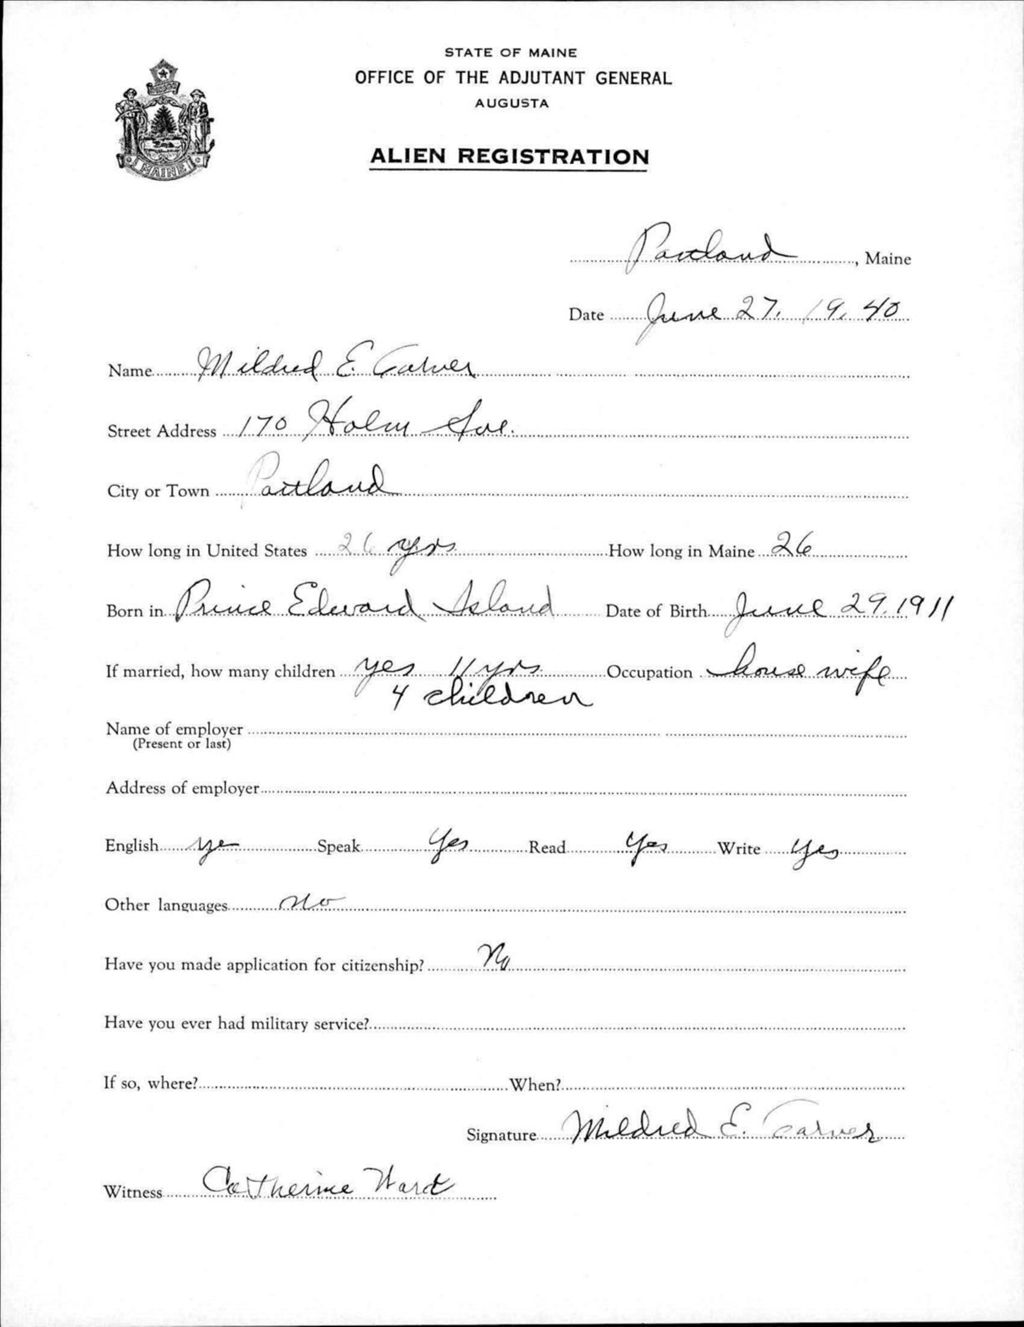 STATE OF MAINE
OFFICE OF THE ADJUTANT GENERAL
AUGUSTA
ALIEN REGISTRATION
MAINE
Portland, Maine
Date June 27, 19 40
Name Mildred E. Carver
Street Address 170 Holm Ave.
City or Town Portland
How long in United States 26 yrs How long in Maine 26
Born in Prince Edward Island Date of Birth June 29, 1911
If married, how many children yes 11 yrs Occupation house wife
4 children
Name of employer
(Present or last)
Address of employer
English ye Speak Yes Read Yes Write Yes
Other languages no
Have you made application for citizenship? No
Have you ever had military service?
If so, where? When?
Signature Mildred E. Carver
Witness Catherine Ward